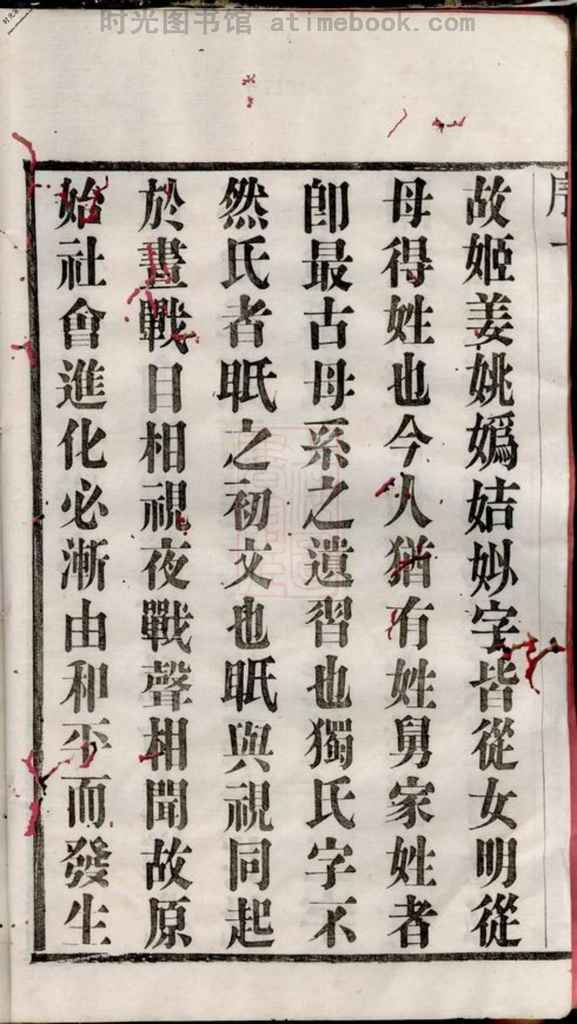 时光图书馆 atimebook.com
序一
故姬姜姚嬀姞妙字皆從女明從
母得姓也今人猶有姓舅家姓者
卽最古母系之遺習也獨氏字不
然氏者眂之初文也眂與視同起
於晝戰日相視夜戰聲相聞故原
始社會進化必漸由和平而發生